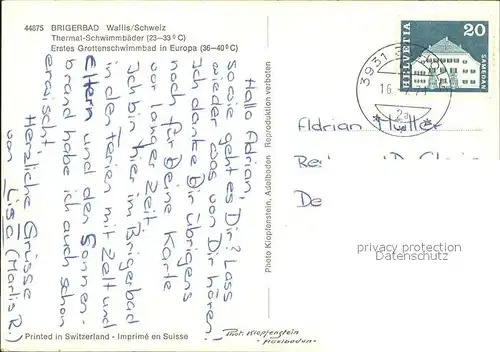 44875 BRIGERBAD Wallis/Schweiz
Thermal-Schwimmbäder (23-33°C)
Erstes Grottenschwimmbad in Europa (36-40°C)
Hallo Adrian,
So wie geht es Dir? Lass
wieder was von Dir hören!
Ich danke Dir übrigens
noch für Deine Karte
vor langer Zeit.
Ich bin hier im Brigerbad
in den Ferien mit Zelt und
Eltern und den Sonnen-
brand habe ich auch schon
erwischt
Herzliche Grüsse
von Lisa (Marlis R.)
Printed in Switzerland - Imprimé en Suisse
Photo Klopfenstein, Adelboden Reproduktion verboten
Phot. Klopfenstein
Adelboden
HELVETIA
20
SAMEDAN
3931
16.
Adrian Müller
De
privacy protection
Datenschutz